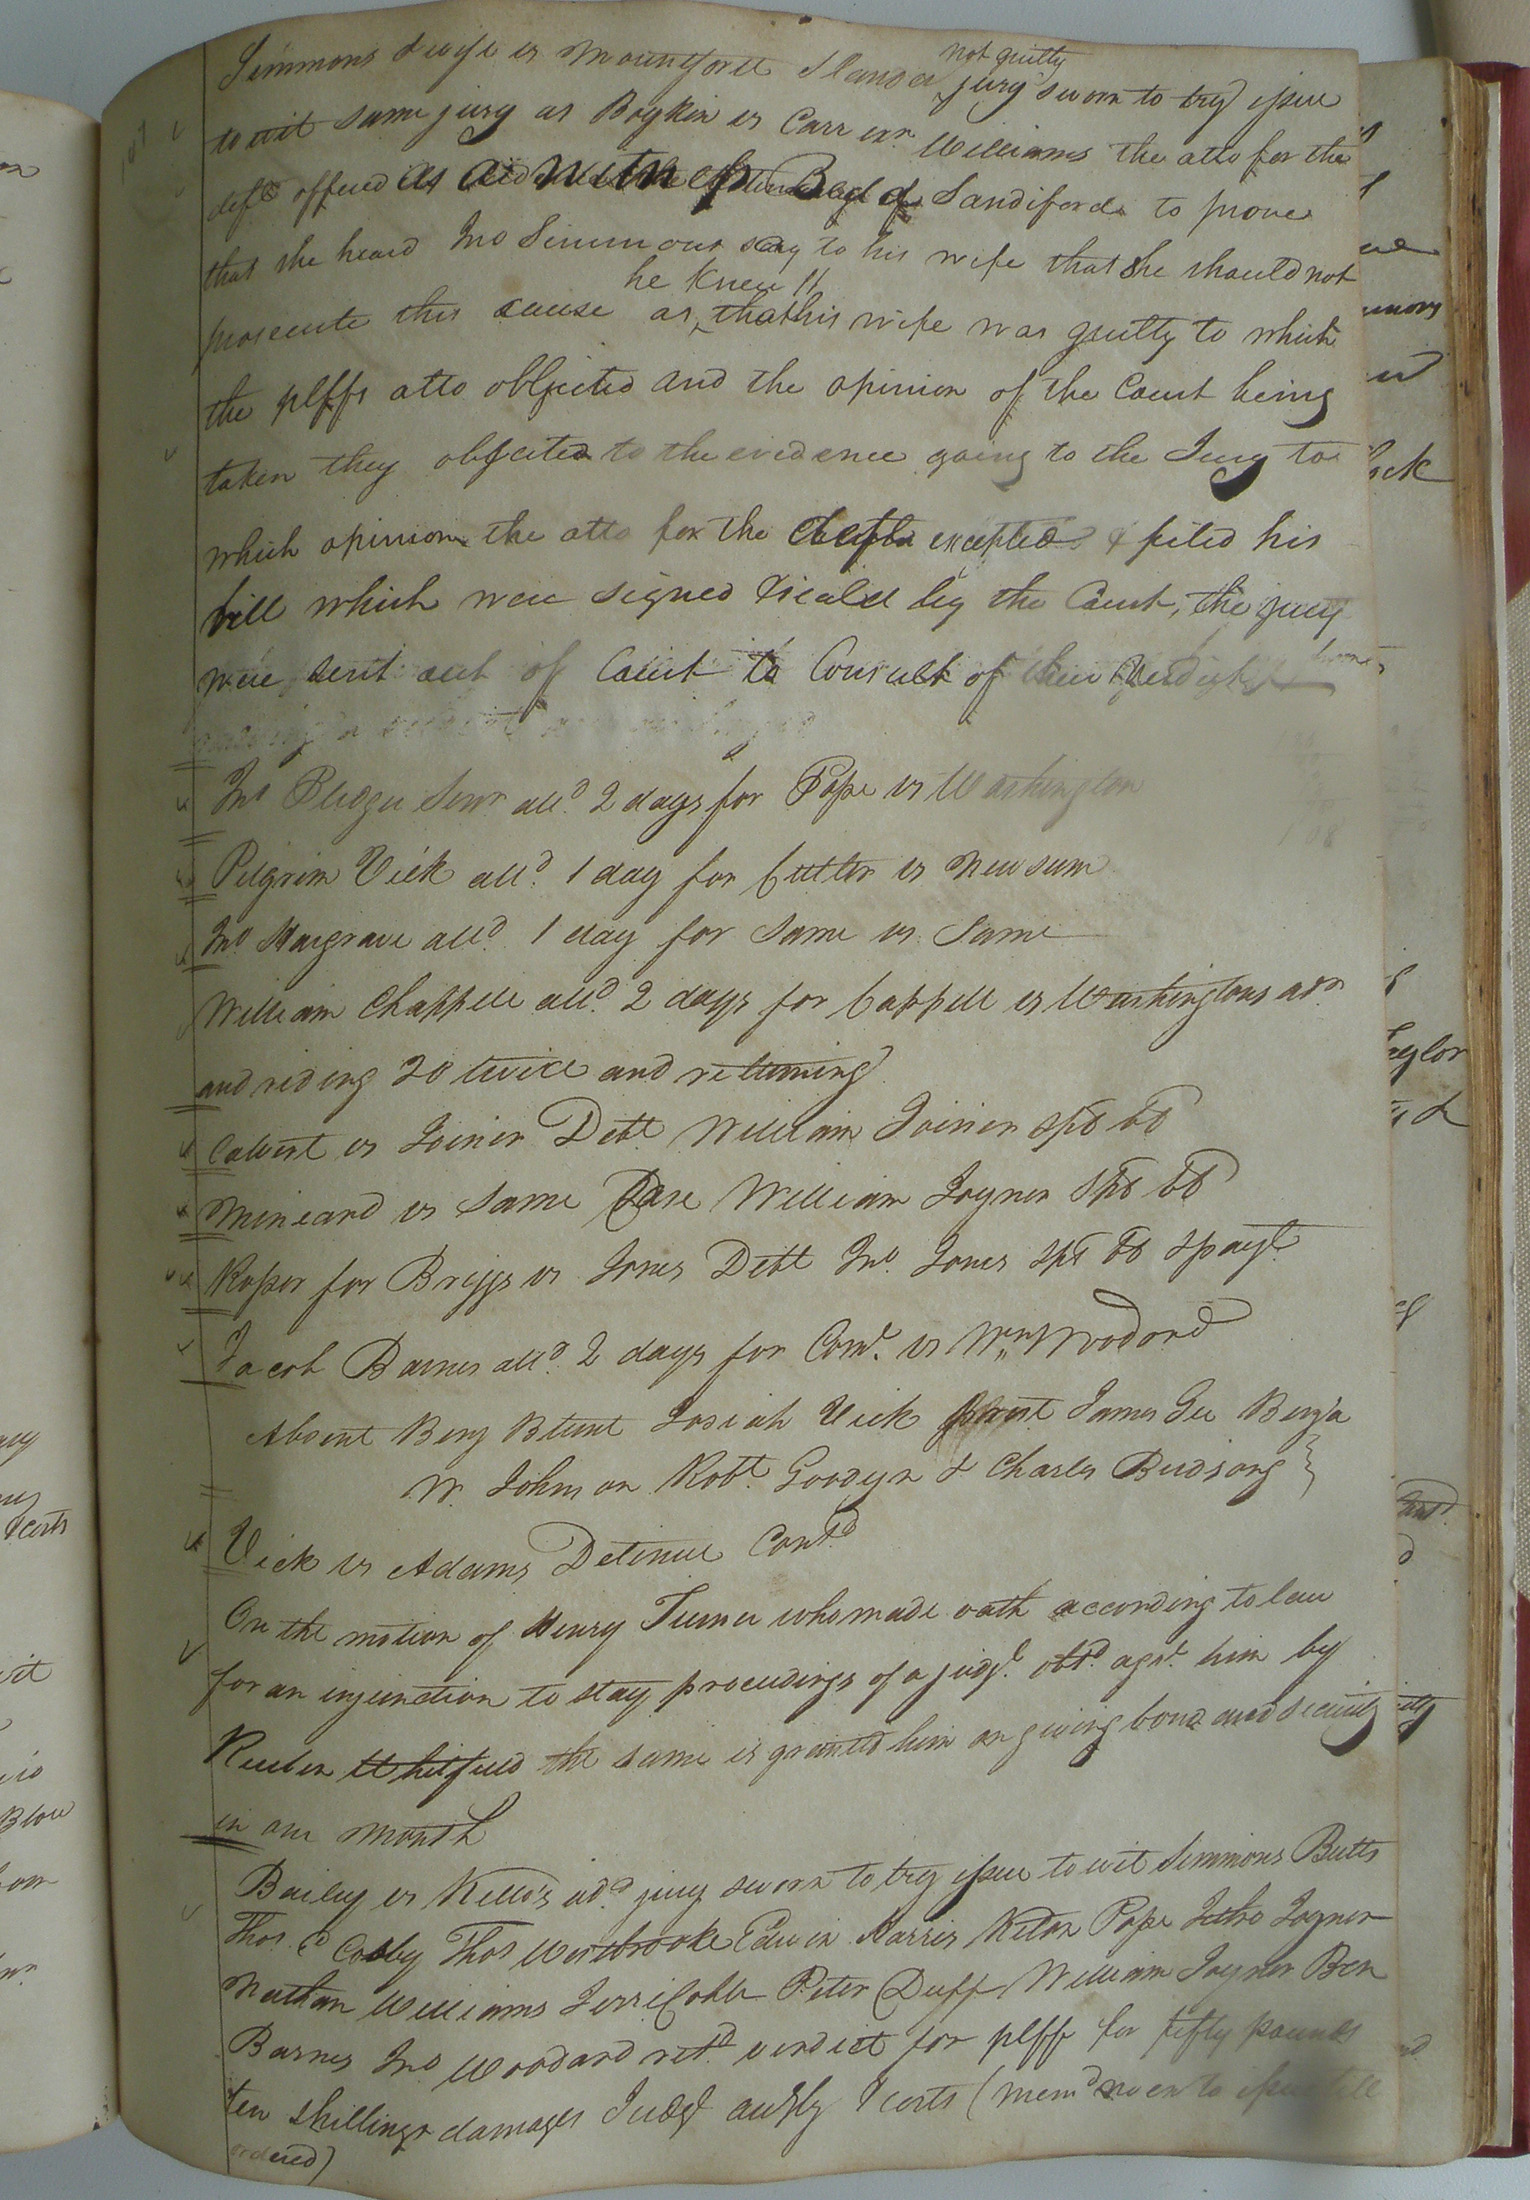 Simmons & wife vs Mountfort Slander not guilty jury sworn to try issue
to wit same jury as Boykin vs Carr exr. Williams the atto for the
deft offered as a witness Sandiford to prove
that she heard Jno Simmons say to his wife that she should not
he knew
prosecute this cause as that his wife was guilty to which
the plffs atto objected and the opinion of the Court being
taken they objected to the evidence going to the Jury to
which opinion the atto for the defts excepted & filed his
bill which were signed & seald by the Court, the jury
were sent out of Court to Consult of their Verdict
Jno Pledger Senr alld. 2 days for Pope vs Washington
Pilgrim Vick alld. 1 day for Cutler vs Newsum
Jno Hargrave alld. 1 day for Same vs Same
William Chappell alld. 2 days for Cappell vs Washingtons adr
and riding 20 twice and returning
Calvert vs Joiner Debt William Joiner spb bb
Mineard vs Same Case William Joyner Spb bb
Roper for Briggs vs Jones Debt Jno. Jones spb bb spayt
Jacob Barnes alld. 2 days for Comd. vs Wm Woodard
Absent Benj Blunt Josiah Vick prest James Gee Benja
W. Johnson Robt. Goodyn & Charles Birdsong
Vick vs Adams Detinue Contd
On the motion of Henry Turner who made oath according to law
for an injunction to stay proceedings of a judgt. obtd. agst. him by
Reuben Whitfield the same is granted him on giving bond and security
in one month
Bailey vs Kello's ad. jury sworn to try issue to wit Simmons Butts
Thos. Cosby Thos Westbrooke Edwin Harris Kiton Pope Jethro Joyner
Nathan Williams Jerri Cobb Peter Duff William Joyner Ben
Barnes Jno Woodard retd. verdict for plff for fifty pounds
ten shillings damages Judgt accdly & costs (memd no exn to issue till
ordered)